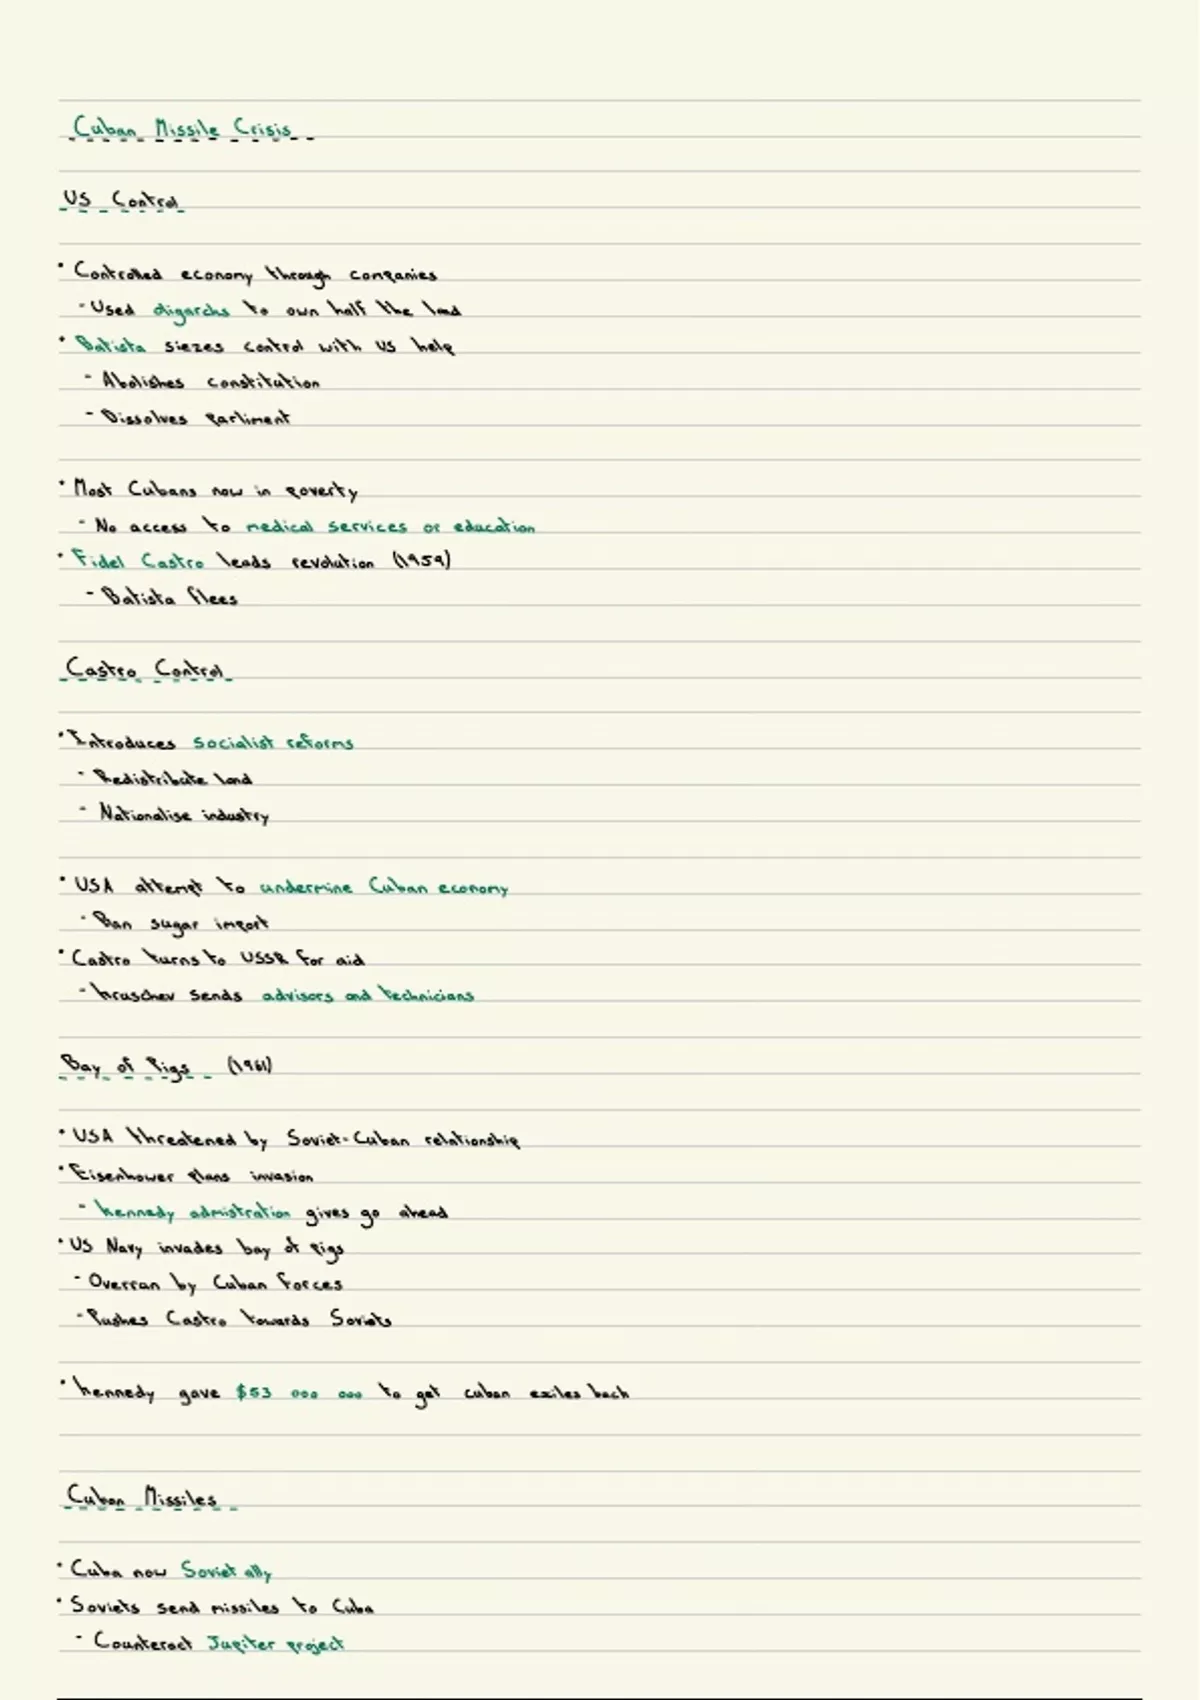 Cuban Missile Crisis
US Control
• Controlled economy through companies
- Used oligarchs to own half the land
• Batista siezes control with US help
- Abolishes constitution
- Dissolves parliment
• Most Cubans now in poverty
- No access to medical services or education
• Fidel Castro leads revolution (1959)
- Batista flees
Castro Control
• Introduces socialist reforms
- Redistribute land
- Nationalise industry
• USA attempt to undermine Cuban economy
- Ban sugar import
• Castro turns to USSR for aid
- kruschev sends advisors and technicians
Bay of Pigs (1961)
• USA threatened by Soviet-Cuban relationship
• Eisenhower plans invasion
- kennedy admistration gives go ahead
• US Navy invades bay of pigs
- Overran by Cuban forces
- Pushes Castro towards Soviets
• kennedy gave $53 000 000 to get cuban exiles back
Cuban Missiles
• Cuba now Soviet ally
• Soviets send missiles to Cuba
- Counteract Jupiter project